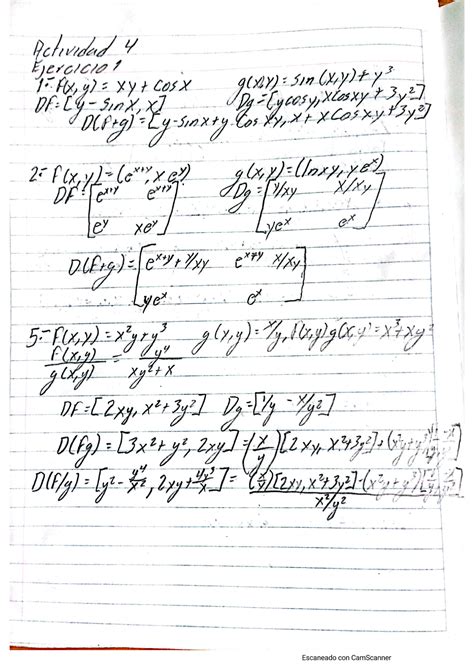 Actividad 4
Ejercicio 1
1.- f(x,y) = xy + cosx g(x,y) = sin (x,y) + y³
Df = [y - sinx, x] Dg = [ycosy, xcosxy + 3y²]
D(f+g) = [y-sinx+y cosxy, x + xcosxy + 3y²]
2.- f(x,y) = (e^x+y, x e^y) g(x,y) = (lnxy, y e^x)
Df = [e^x+y e^x+y Dg = [y/xy x/xy
e^y xe^y] ye^x e^x]
D(f+g) = [e^x+y + y/xy e^x+y x/xy
ye^x e^x]
5.- f(x,y) = x²y + y³ g(x,y) = x/y, f(x,y)g(x,y) = x³ + xy²
f(x,y)/g(x,y) = y⁴/xy² + x
Df = [2xy, x² + 3y²] Dg = [1/y - x/y²]
D(fg) = [3x² + y², 2xy] = (x/y) [2xy, x² + 3y²] +
D(f/g) = [y² - y⁴/x², 2xy + 4y³/x] = (x/y)[2xy, x² + 3y²] - (x²y + y³) / x²/y²
Escaneado con CamScanner